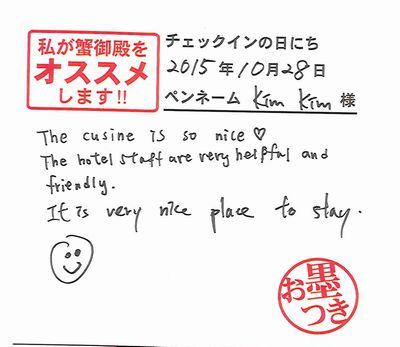 私が蟹御殿を
オススメ
します!!
チェックインの日にち
2015年10月28日
ペンネーム Kim Kim 様
The cusine is so nice ♡
The hotel staff are very helpful and
friendly.
It is very nice place to stay.
お墨つき